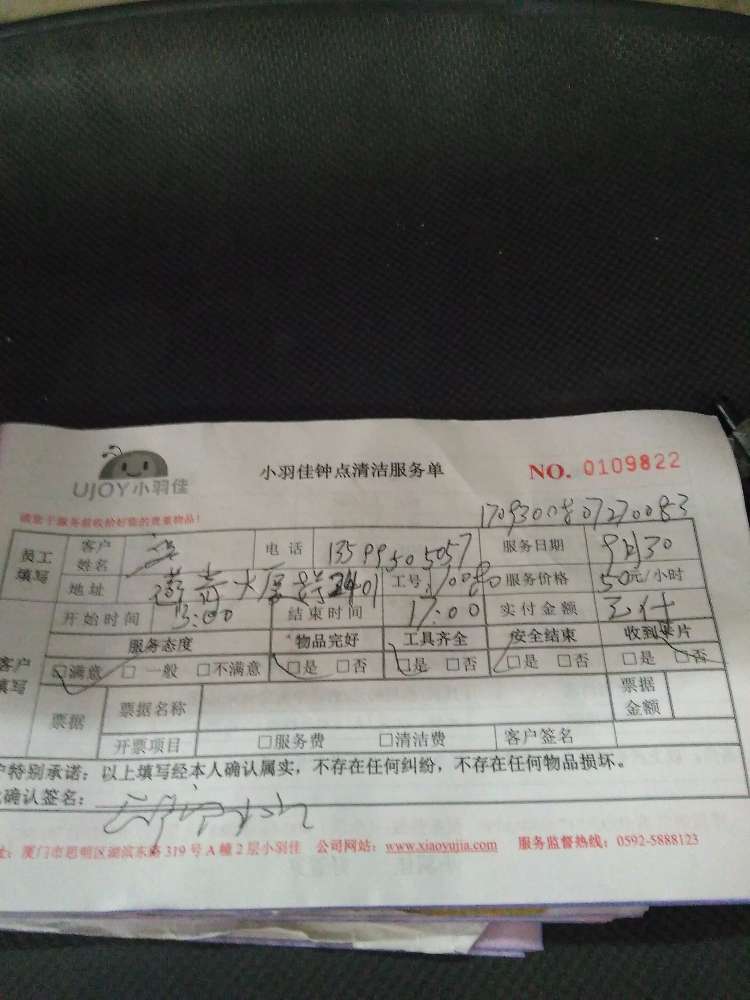 UJOY小羽佳 小羽佳钟点清洁服务单 NO. 0109822
请您于服务前收拾好您的贵重物品!
员工填写 客户姓名 电话 13599505057 服务日期 9月30
地址 大厦 2401 工号 服务价格 50元/小时
开始时间 13:00 结束时间 17:00 实付金额 已付
服务态度 物品完好 工具齐全 安全结束 收到卡片
客户填写 ☑满意 □一般 □不满意 □是 □否 □是 □否 □是 □否 □是 □否
票据 票据名称 票据金额
开票项目 □服务费 □清洁费 客户签名
户特别承诺：以上填写经本人确认属实，不存在任何纠纷，不存在任何物品损坏。
确认签名：
址：厦门市思明区湖滨东路319号A幢2层小羽佳 公司网站：www.xiaoyujia.com 服务监督热线：0592-5888123